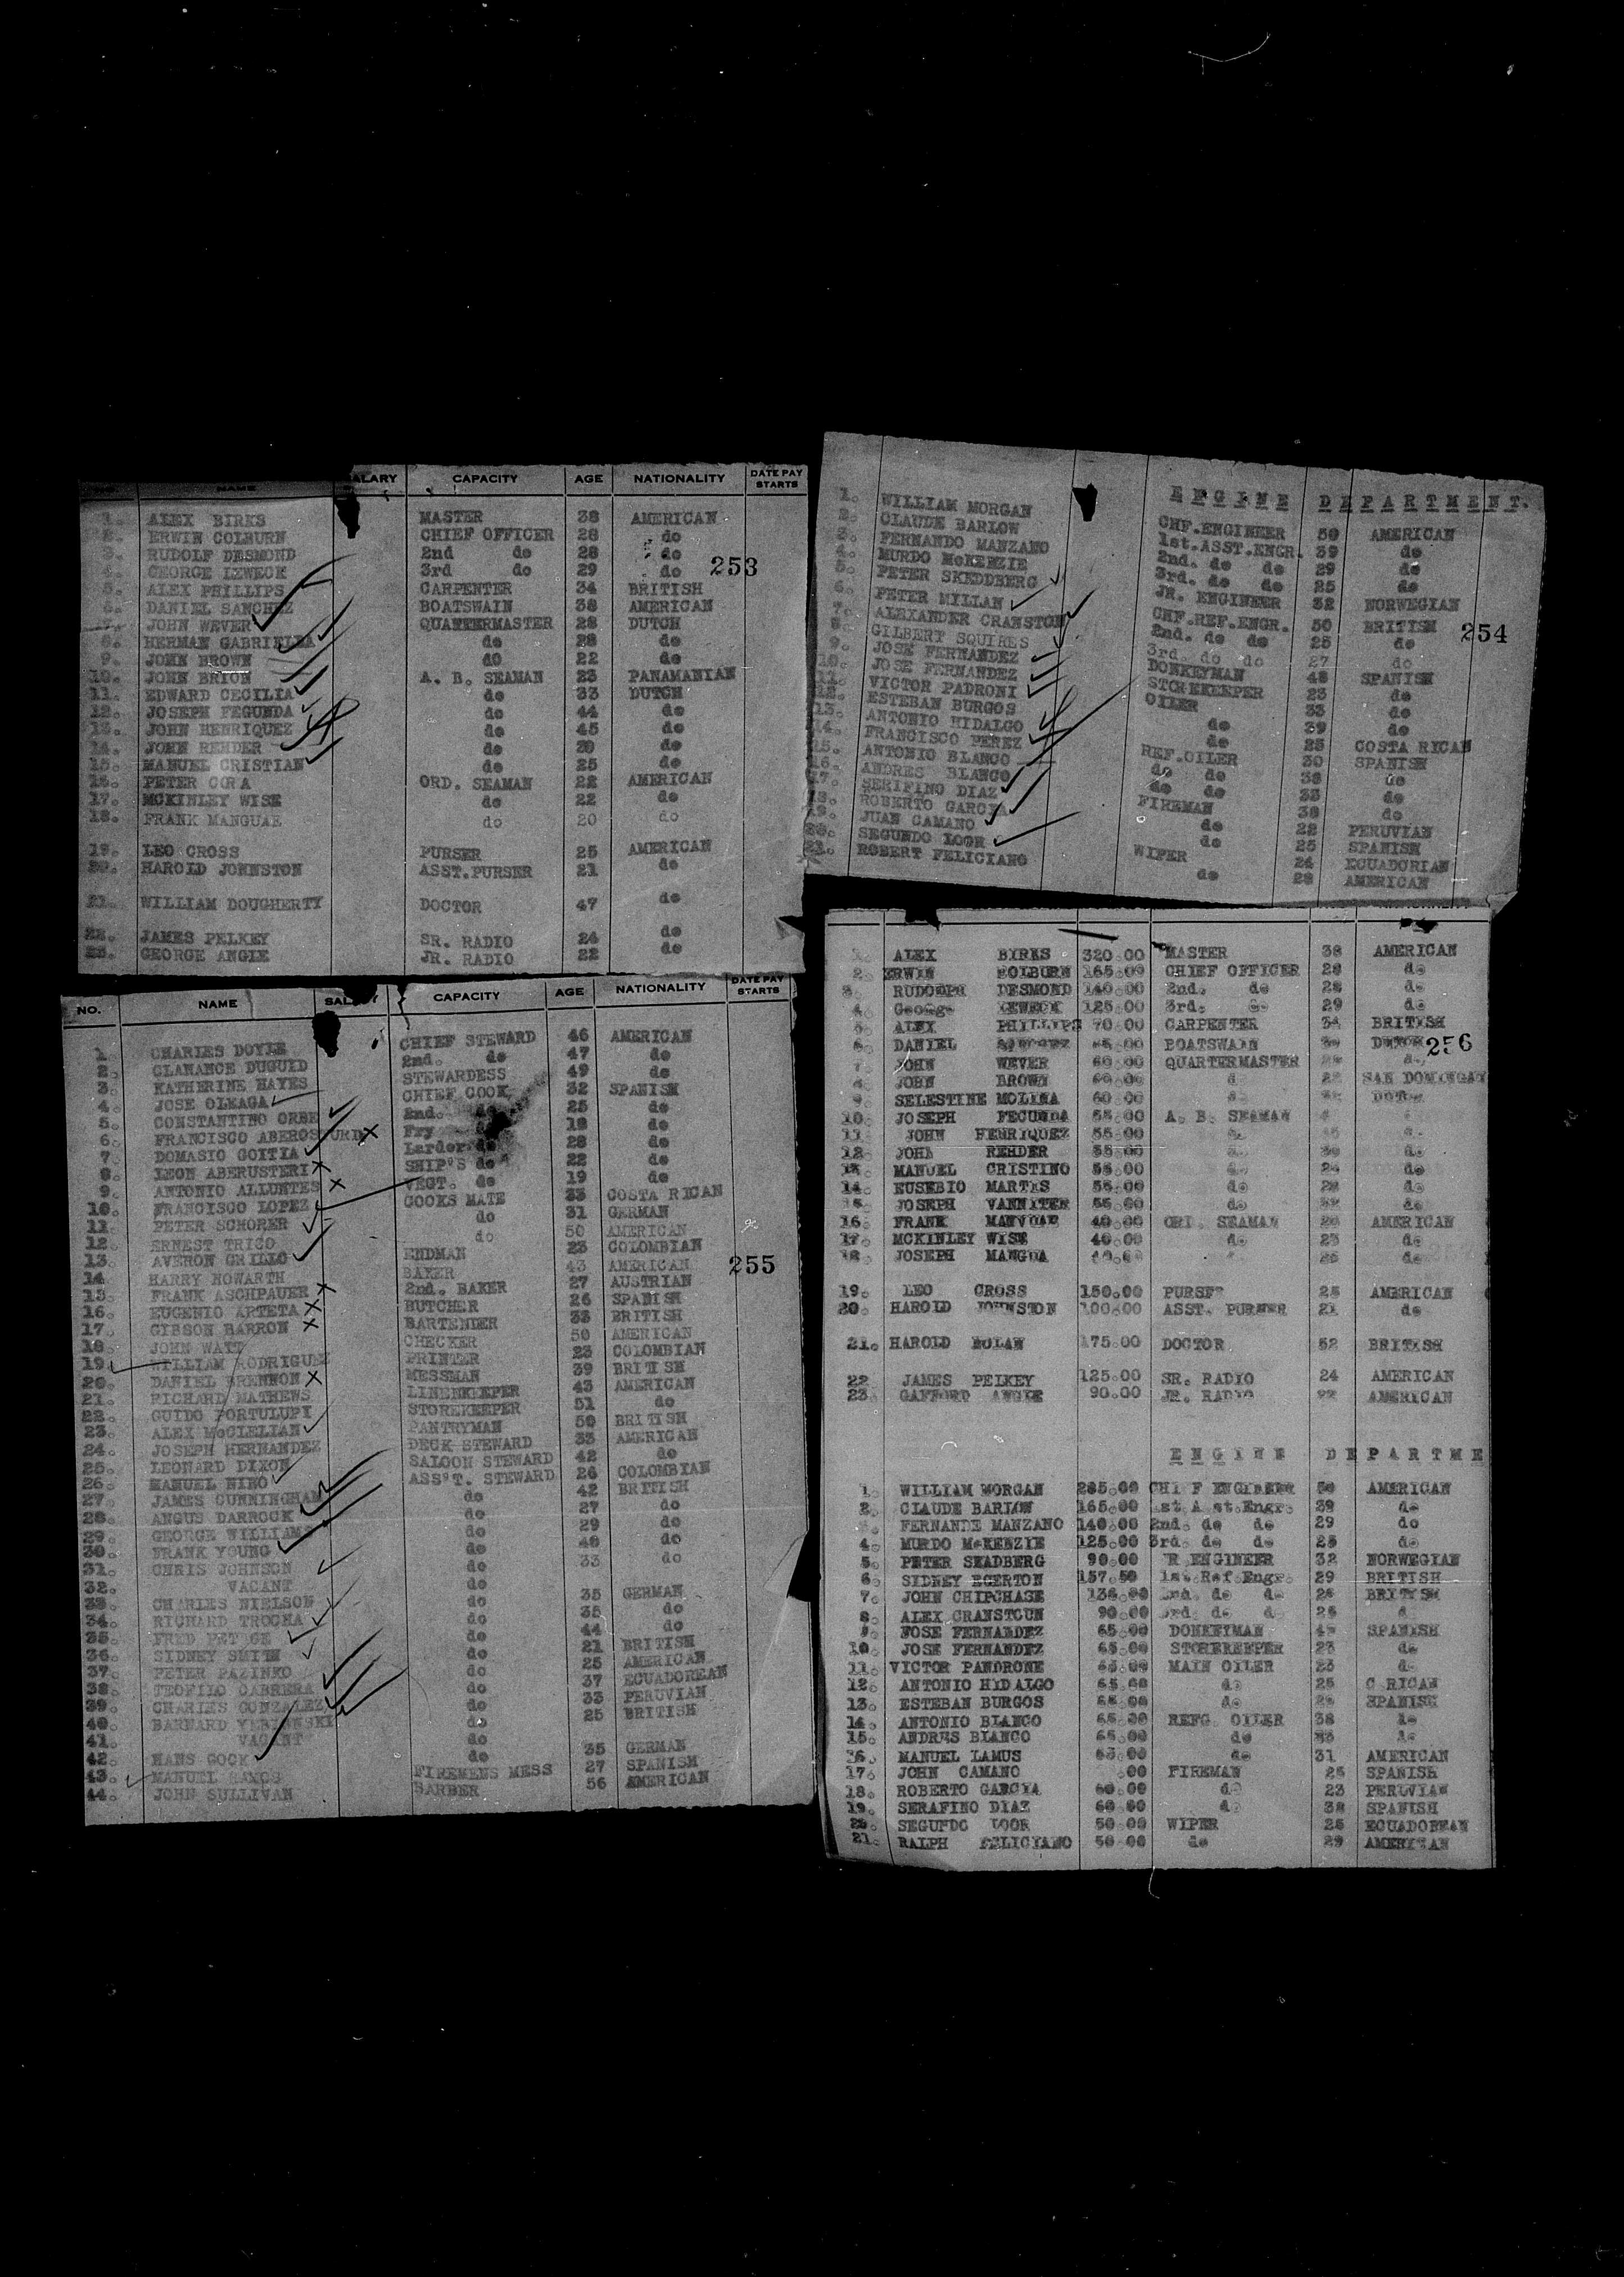 NAME SALARY CAPACITY AGE NATIONALITY DATE PAY STARTS
1. ALEX BIRKS MASTER 38 AMERICAN
2. ERWIN COLBURN CHIEF OFFICER 28 do
3. RUDOLF DESMOND 2nd do 28 do
4. GEORGE IZWECK 3rd do 29 do
253
5. ALEX PHILLIPS CARPENTER 34 BRITISH
6. DANIEL SANCHEZ BOATSWAIN 38 AMERICAN
7. JOHN WEVER QUARTERMASTER 28 DUTCH
8. HERMAN GABRIELDA do 28 do
9. JOHN BROWN do 22 do
10. JOHN BRION A. B. SEAMAN 23 PANAMANIAN
11. EDWARD CECILIA do 33 DUTCH
12. JOSEPH FEGUNDA do 44 do
13. JOHN HENRIQUEZ do 45 do
14. JOHN REHDER do 20 do
15. MANUEL CRISTIAN do 25 do
16. PETER CORA ORD. SEAMAN 22 AMERICAN
17. MCKINLEY WISE do 22 do
18. FRANK MANGUAE do 20 do
19. LEO CROSS PURSER 25 AMERICAN
20. HAROLD JOHNSTON ASST.PURSER 21 do
21. WILLIAM DOUGHERTY DOCTOR 47 do
22. JAMES PELKEY SR. RADIO 24 do
23. GEORGE ANGLE JR. RADIO 22 do
ENGINE DEPARTMENT.
1. WILLIAM MORGAN CHF.ENGINEER 50 AMERICAN
2. CLAUDE BARLOW 1st.ASST.ENGR. 39 do
3. FERNANDO MANZANO 2nd. do do 29 do
4. MURDO McKENZIE 3rd. do do 25 do
5. PETER SKEDDBERG JR. ENGINEER 32 NORWEGIAN
6. PETER MILLAN CHF.REF.ENGR. 50 BRITISH
254
7. ALEXANDER CRANSTON 2nd. do do 25 do
8. GILBERT SQUIRES 3rd. do do 27 do
9. JOSE FERNANDEZ DONKEYMAN 48 SPANISH
10. JOSE FERNANDEZ STOREKEEPER 23 do
11. VICTOR PADRONI OILER 33 do
12. ESTEBAN BURGOS do 39 do
13. ANTONIO HIDALGO do 25 COSTA RICAN
14. FRANCISCO PEREZ REF.OILER 30 SPANISH
15. ANTONIO BLANCO do do 38 do
16. ANDRES BLANCO do do 33 do
17. SERIFINO DIAZ FIREMAN 38 do
18. ROBERTO GARCIA do 22 PERUVIAN
19. JUAN CAMANO do 25 SPANISH
20. SEGUNDO LOOR WIPER 24 ECUADORIAN
21. ROBERT FELICIANO do 28 AMERICAN
NO. NAME SALARY CAPACITY AGE NATIONALITY DATE PAY STARTS
1. CHARLES DOYLE CHIEF STEWARD 46 AMERICAN
2. CLANANCE DUGUID 2nd. do 47 do
3. KATHERINE HAYES STEWARDESS 49 do
4. JOSE OLEAGA CHIEF COOK 32 SPANISH
5. CONSTANTINO ORBE 2nd. 25 do
6. FRANCISCO Fry 18 do
7. DOMASIO GOITIA Larder do 28 do
8. LEON ABERUSTERI SHIP'S do 22 do
9. ANTONIO ALLUNTES VEGT. do 19 do
10. FRANCISCO LOPEZ COOKS MATE 33 COSTA RICAN
11. PETER SCHORER do 31 GERMAN
12. ERNEST TRICO do 50 AMERICAN
13. AVERON GRILLO ENDMAN 23 COLOMBIAN
255
14 HARRY HOWARTH BAKER 43 AMERICAN
15. FRANK ASCHPAUER 2nd. BAKER 27 AUSTRIAN
16. EUGENIO ARTETA BUTCHER 26 SPANISH
17. GIBSON BARRON BARTENDER 33 BRITISH
18. JOHN WATT CHECKER 50 AMERICAN
19. WILLIAM RODRIGUEZ PRINTER 23 COLOMBIAN
20. DANIEL BRENNON MESSMAN 39 BRITISH
21. RICHARD MATHEWS LINENKEEPER 43 AMERICAN
22. GUIDO PORTULUPI STOREKEEPER 51 do
23. ALEX McCLELIAN PANTRYMAN 50 BRITISH
24. JOSEPH HERNANDEZ DECK STEWARD 33 AMERICAN
25. LEONARD DIXON SALOON STEWARD 42 do
26. MANUEL NINO ASS'T. STEWARD 26 COLOMBIAN
27. JAMES CUNNINGHAM do 42 BRITISH
28. ANGUS DARROCK do 27 do
29. GEORGE WILLIAMS do 29 do
30. FRANK YOUNG do 48 do
31. CHRIS JOHNSON do 33 do
32. VACANT do
33. CHARLES NIELSON do 35 GERMAN
34. RICHARD TROCHA do 35 do
35. FRED do 44 do
36. SIDNEY SMITH do 21 BRITISH
37. PETER PAZINKO do 25 AMERICAN
38. TEOFILO CABRERA do 37 ECUADOREAN
39. CHARLES GONZALEZ do 33 PERUVIAN
40. BARNARD do 25 BRITISH
41. VACANT do
42. HANS GOCK do 35 GERMAN
43. MANUEL RAMOS FIREMENS MESS 27 SPANISH
44. JOHN SULLIVAN BARBER 56 AMERICAN
1. ALEX BIRKS 320.00 MASTER 38 AMERICAN
2. ERWIN COLBURN 165.00 CHIEF OFFICER 28 do
3. RUDOLPH DESMOND 140.00 2nd. do 28 do
4. George 125.00 3rd. do 29 do
5 ALEX PHILLIPS 70.00 CARPENTER 34 BRITISH
6 DANIEL 65.00 BOATSWAIN DUTCH
256
7 JOHN WEVER 60.00 QUARTERMASTER
8 JOHN BROWN 60.00 22 SAN DOMINGAN
9. SELESTINE MOLINA 60.00
10. JOSEPH FECUNDA 55.00 A. B. SEAMAN
11 JOHN HENRIQUEZ 55.00
12 JOHN REHDER 55.00 do
13. MANUEL CRISTINO 55.00 24 do
14. EUSEBIO MARTIS 55.00 do 28 do
15. JOSEPH VANNITER 55.00 do do
16. FRANK 40.00 ORD. SEAMAN 20 AMERICAN
17. MCKINLEY WISE 40.00 do 23 do
18. JOSEPH MANGUA 40.00 25 do
19. LEO CROSS 150.00 PURSER 25 AMERICAN
20. HAROLD JOHNSTON 100.00 ASST. PURSER 21 do
21. HAROLD NOLAN 175.00 DOCTOR 52 BRITISH
22 JAMES PELKEY 125.00 SR. RADIO 24 AMERICAN
23. GAFFORD ANGLE 90.00 JR. RADIO 22 AMERICAN
ENGINE DEPARTME
1. WILLIAM MORGAN 285.00 CHI F ENGINEER 50 AMERICAN
2. CLAUDE BARLOW 165.00 1st A st.Engr. 39 do
FERNANDE MANZANO 140.00 2nd. do do 29 do
4. MURDO McKENZIE 125.00 3rd. do do 25 do
5. PETER SKADBERG 90.00 R ENGINEER 32 NORWEGIAN
6. SIDNEY EGERTON 157.50 1st.Ref.Engr. 29 BRITISH
7. JOHN CHIPCHASE 136.00 2nd. do do 26 BRITISH
8. ALEX CRANSTOUN 90.00 3rd. do d 25 d
9. JOSE FERNANDEZ 65.00 DONKEYMAN SPANISH
10. JOSE FERNANDEZ 65.00 STOREKEEPER 23 do
11. VICTOR PANDRONE 65.00 MAIN OILER 23 do
12. ANTONIO HIDALGO 65.00 do 25 C RICAN
13. ESTEBAN BURGOS 65.00 do SPANISH
14. ANTONIO BLANCO 65.00 REFG. OILER 38 do
15. ANDRES BLANCO 65.00 do 33 do
16. MANUEL LAMUS 65.00 do 31 AMERICAN
17. JOHN CAMANO .00 FIREMAN 25 SPANISH
18. ROBERTO GARCIA 60.00 do 23 PERUVIAN
19. SERAFINO DIAZ 60.00 do 38 SPANISH
20. SEGUNDO LOOR 50.00 WIPER 25 ECUADOREAN
21. RALPH FELICIANO 50.00 do 29 AMERICAN